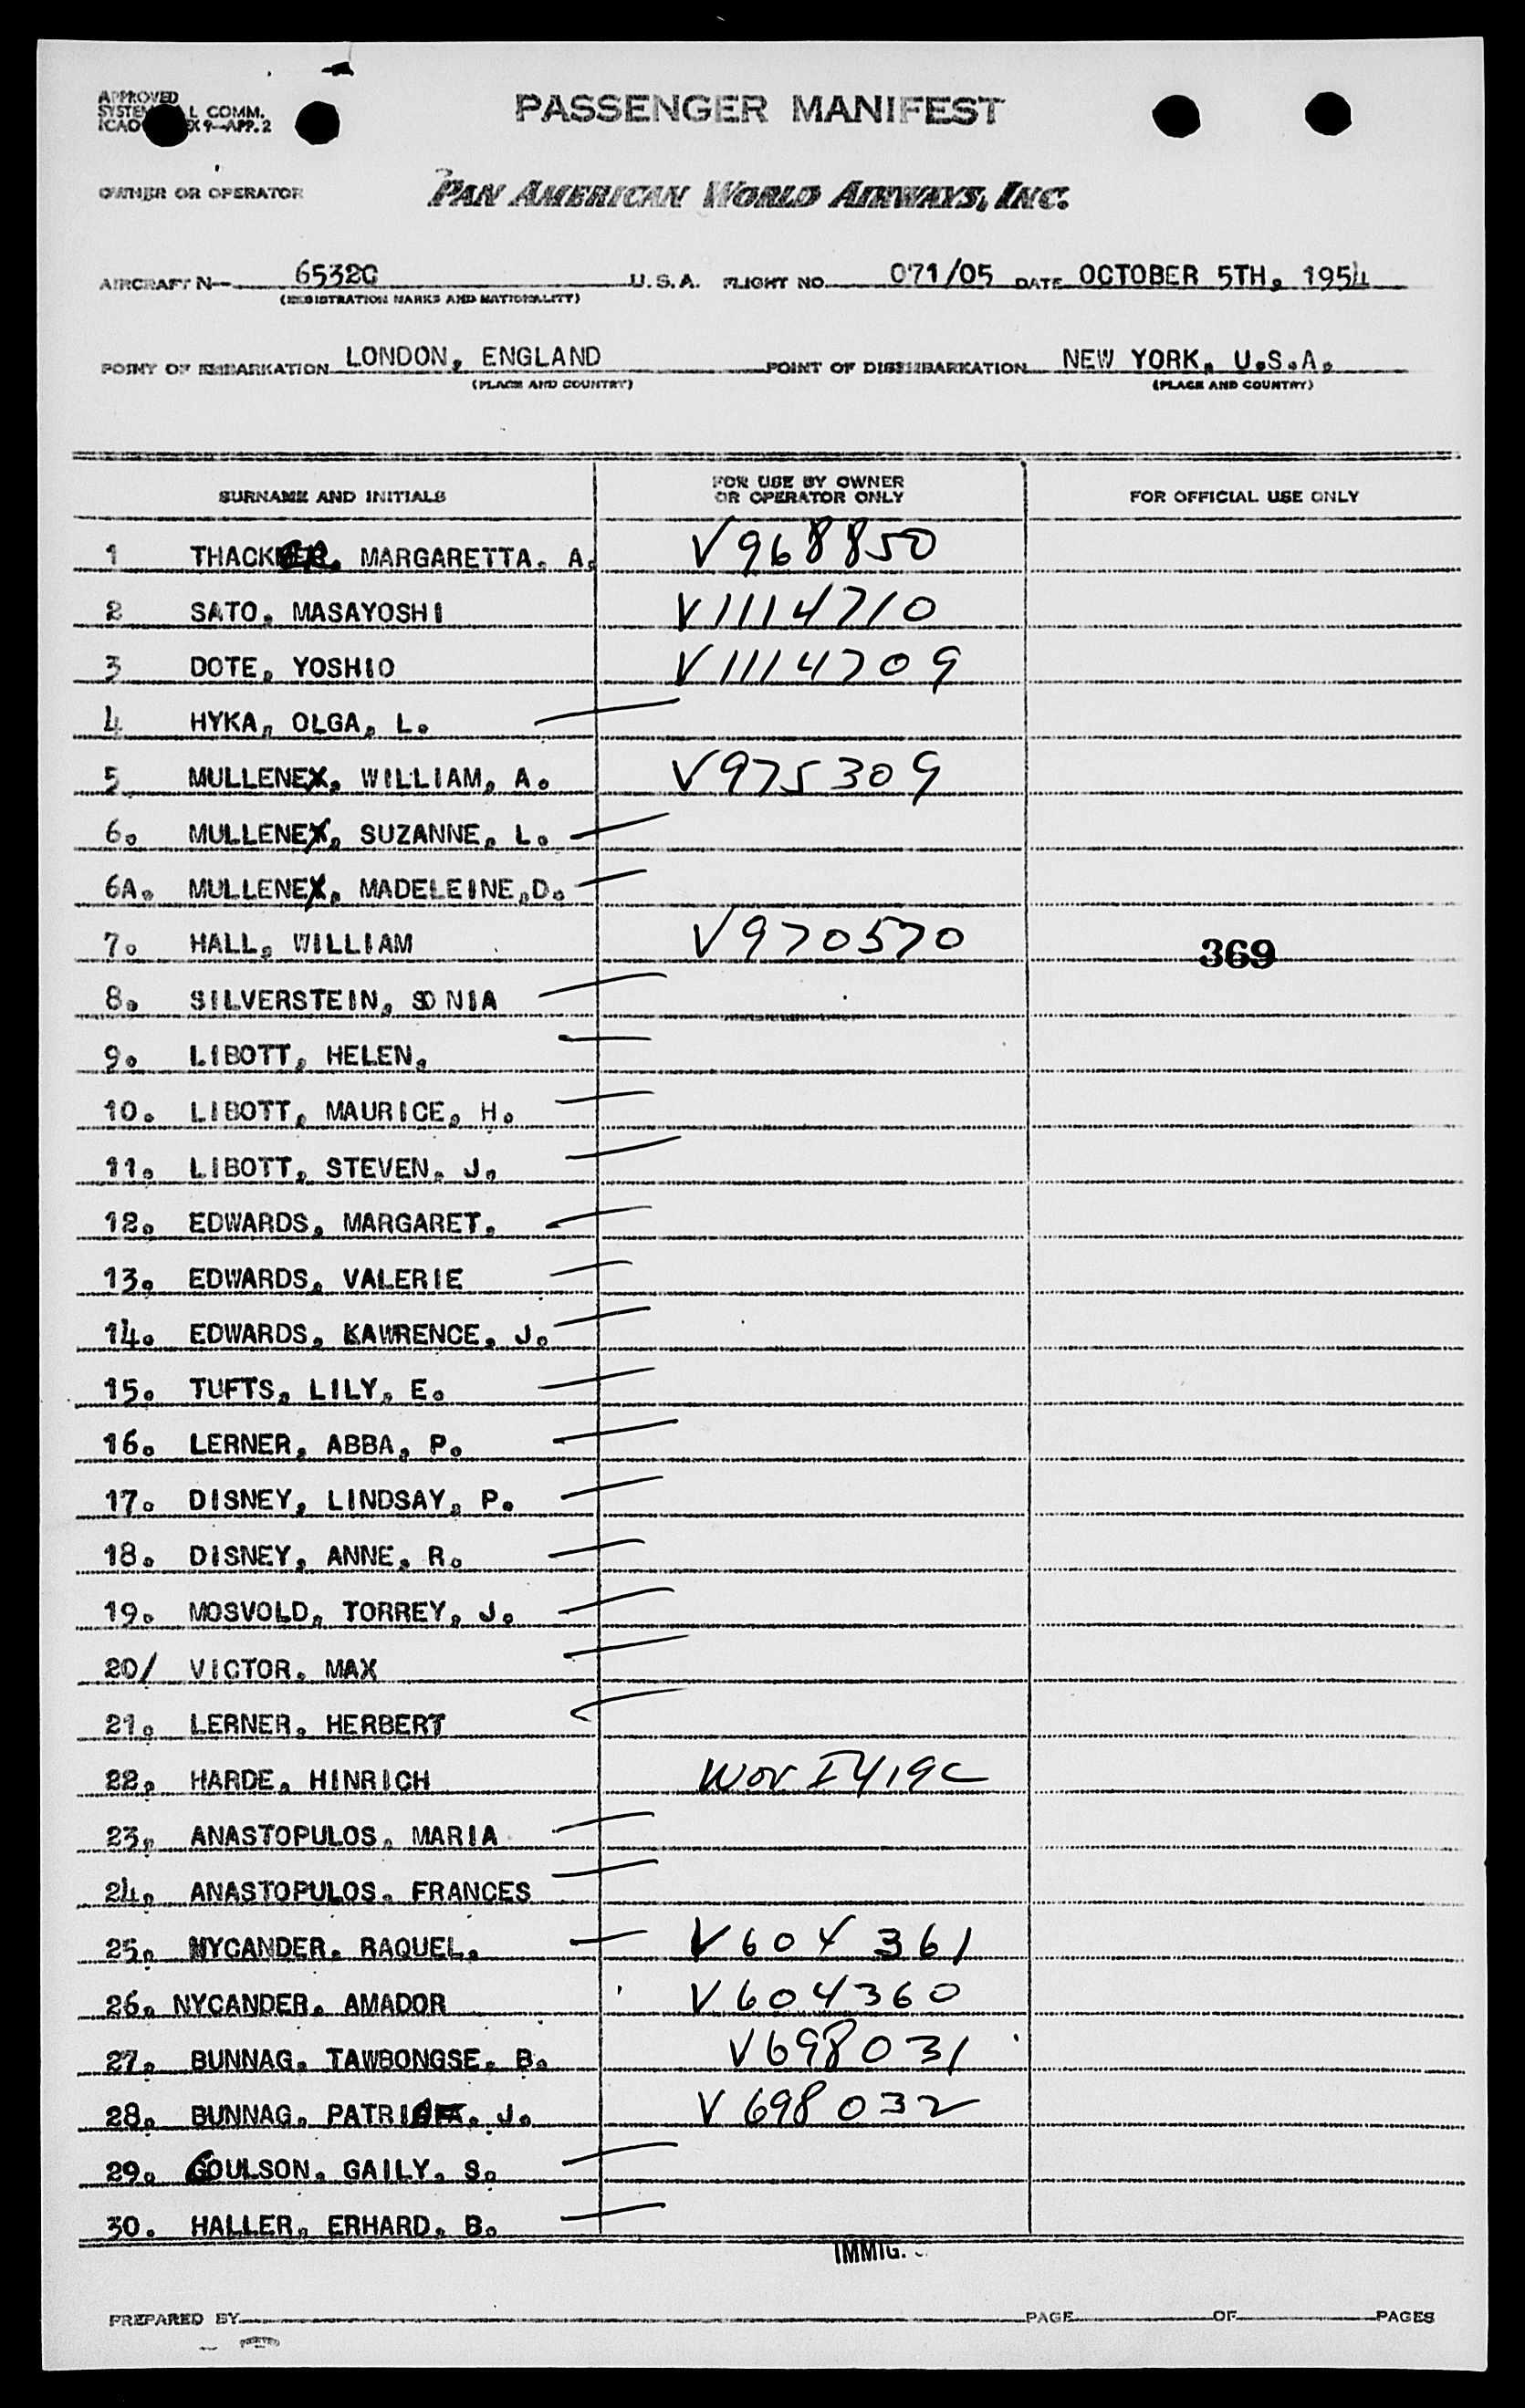 APPROVED
SYSTEM L COMM.
ICAO X 9—APP. 2
PASSENGER MANIFEST
OWNER OR OPERATOR PAN AMERICAN WORLD AIRWAYS, INC.
AIRCRAFT N— 6532C U.S.A. FLIGHT NO. 071/05 DATE OCTOBER 5TH, 1954
(REGISTRATION MARKS AND NATIONALITY)
POINT OF EMBARKATION LONDON, ENGLAND POINT OF DISEMBARKATION NEW YORK, U.S.A.
(PLACE AND COUNTRY) (PLACE AND COUNTRY)
SURNAME AND INITIALS FOR USE BY OWNER OR OPERATOR ONLY FOR OFFICIAL USE ONLY
1 THACKER, MARGARETTA. A. V968850
2 SATO, MASAYOSHI V1114710
3 DOTE, YOSHIO V1114709
4 HYKA, OLGA, L.
5 MULLENEX, WILLIAM, A. V975309
6. MULLENEX, SUZANNE, L.
6A. MULLENEX, MADELEINE,D.
7. HALL, WILLIAM V970570 369
8. SILVERSTEIN, SONIA
9. LIBOTT, HELEN.
10. LIBOTT, MAURICE, H.
11. LIBOTT, STEVEN, J.
12. EDWARDS, MARGARET.
13. EDWARDS, VALERIE
14. EDWARDS, KAWRENCE, J.
15. TUFTS, LILY, E.
16. LERNER, ABBA, P.
17. DISNEY, LINDSAY, P.
18. DISNEY, ANNE, R.
19. MOSVOLD, TORREY, J.
20/ VICTOR, MAX
21. LERNER, HERBERT
22. HARDE, HINRICH WOV I419C
23. ANASTOPULOS, MARIA
24. ANASTOPULOS, FRANCES
25. NYCANDER, RAQUEL. V604361
26. NYCANDER, AMADOR V604360
27. BUNNAG, TAWBONGSE, B. V698031
28. BUNNAG, J. V698032
29. GOULSON, GAILY, S.
30. HALLER, ERHARD, B.
IMMIG.
PREPARED BY PAGE OF PAGES